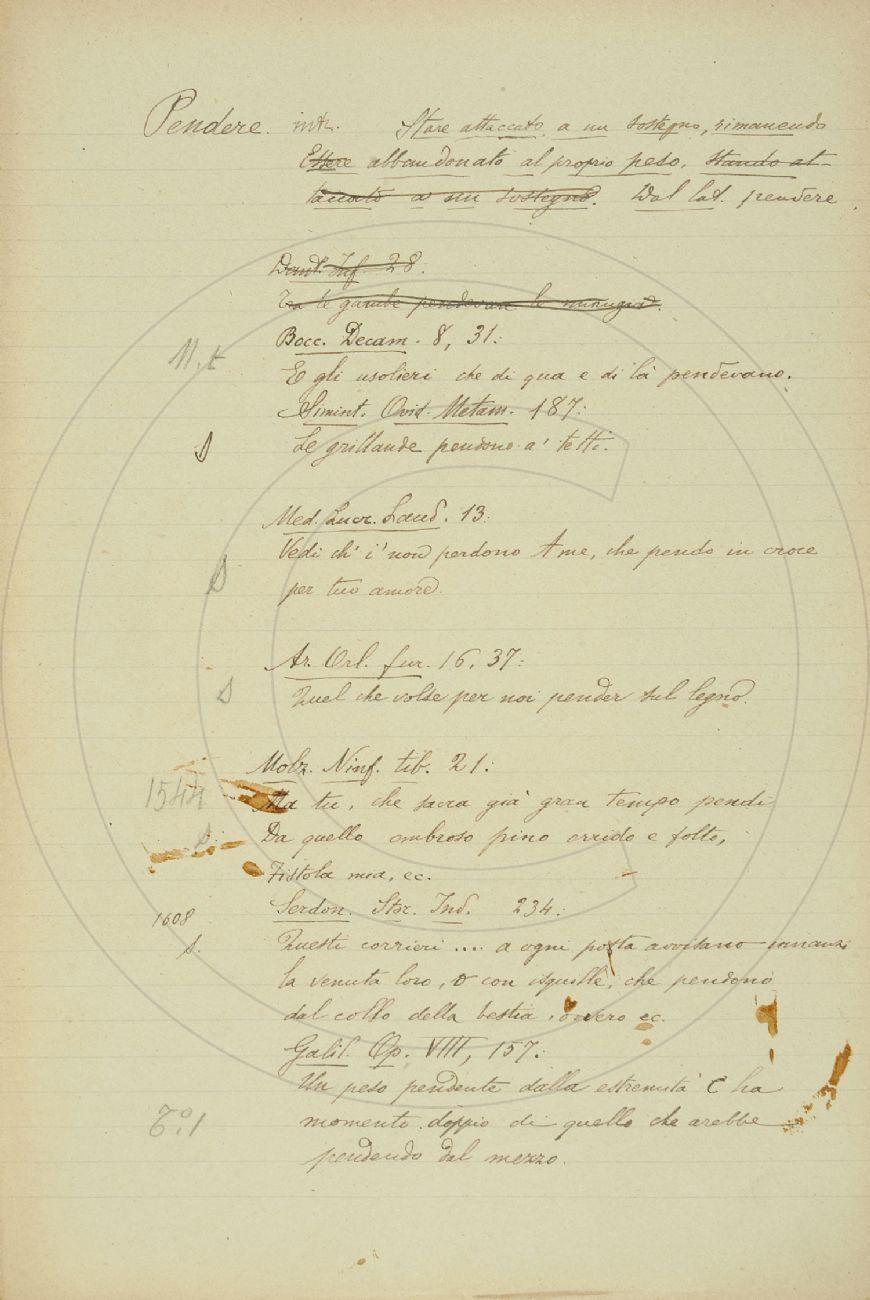 Pendere. intr. Stare attaccato a un sostegno, rimanendo
Essere abbandonato al proprio peso, stando at-
taccato a un sostegno. Dal lat. pendere.
Dant. Inf. 28.
Tra le gambe pendevan le minugia.
Bocc. Decam. 8, 31:
M. t
E gli usolieri che di qua e di là pendevano.
Simint. Ovid. Metam. 187:
S Le grillande pendono a' tetti.
Med. Lucr. Laud. 13:
Vedi ch' i' non perdono A me, che pendo in croce
S per tuo amore.
Ar. Orl. fur. 16, 37:
S Quel che volse per noi pender sul legno.
Molz. Ninf. tib. 21:
1544 Ma tu, che sacra già gran tempo pendi
S Da quello ombroso pino orrido e folto,
Fistola mia, ec.
Serdon. Stor. Ind. 234:
1608
S. Questi corrieri .... a ogni posta avvisano innanzi
la venuta loro, o con isquille, che pendono
dal collo della bestia, ovvero ec.
Galil. Op. VIII, 157:
Un peso pendente dalla estremità C ha
T.° 1 momento doppio di quello che arebbe
pendendo dal mezzo.
C